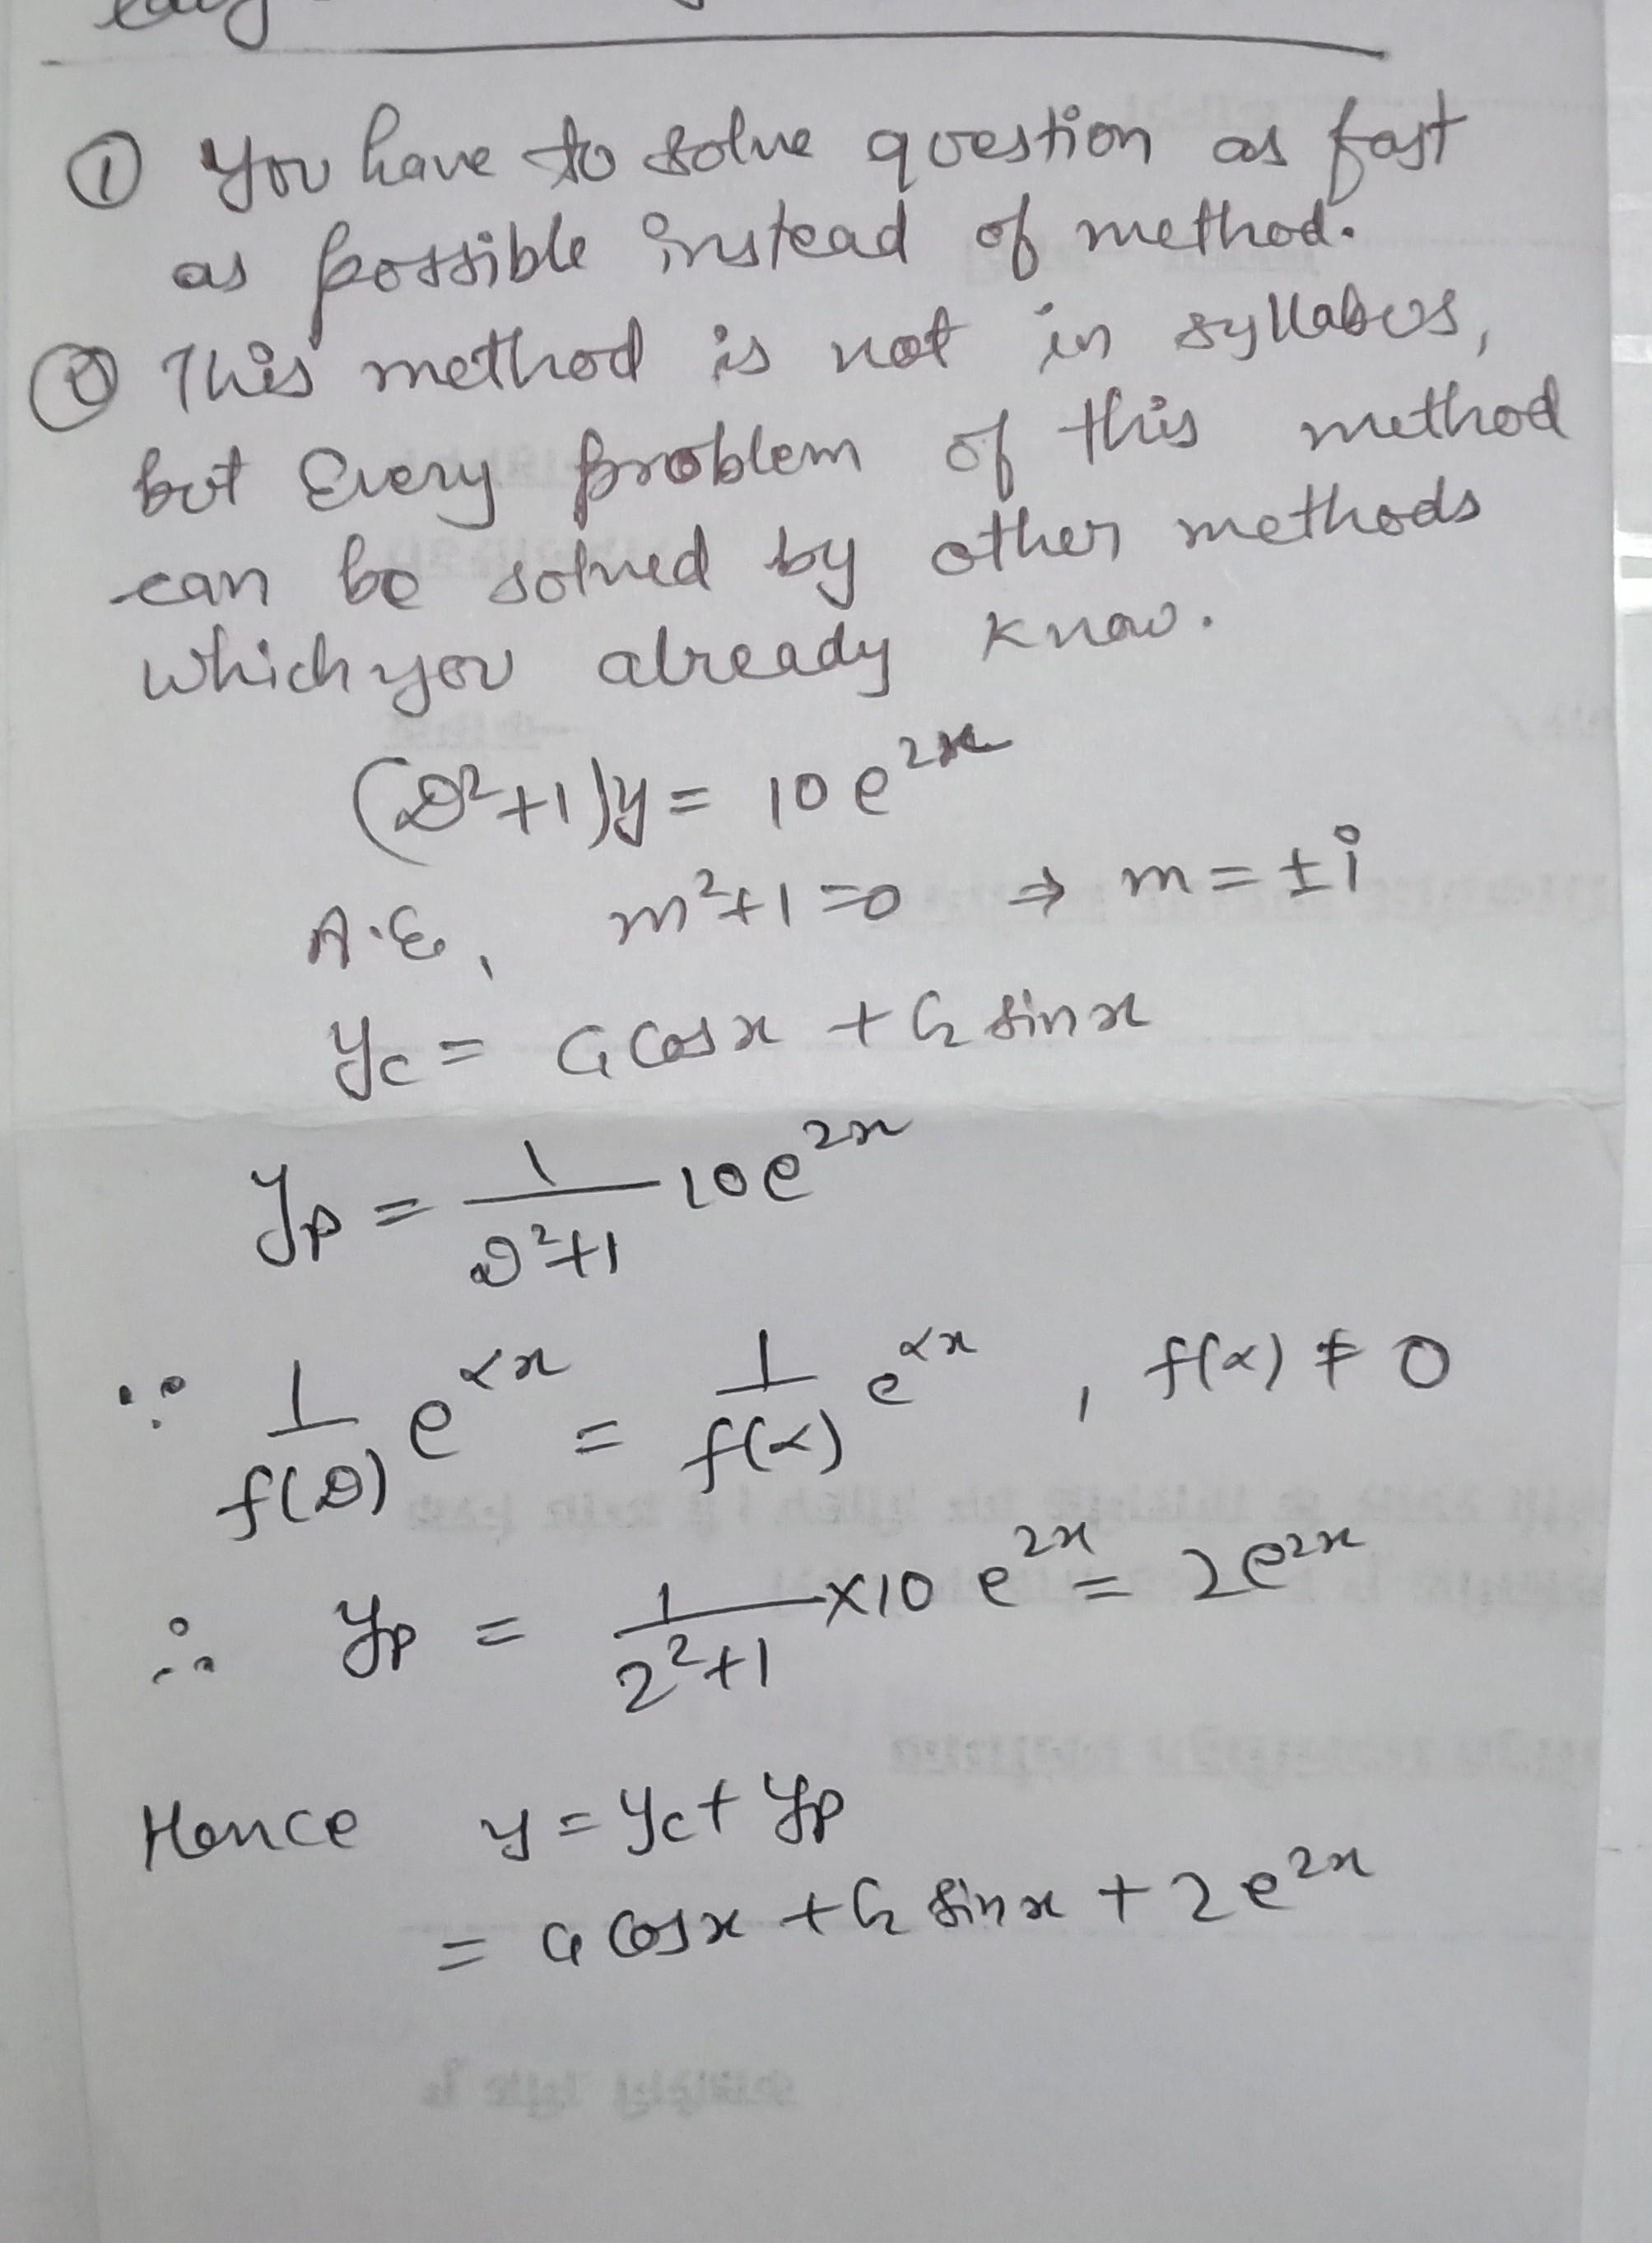 ① You have to solve question as fast
as possible instead of method.
② This method is not in syllabus,
but Every problem of this method
can be solved by other methods
which you already know.
(D²+1)y = 10e²ˣ
A.E, m²+1=0 ⇒ m=±i
y_c = C₁ cosx + C₂ sinx
y_p = 1/(D²+1) 10e²ˣ
∵ 1/f(D) e^(αx) = 1/f(α) e^(αx) , f(α) ≠ 0
∴ y_p = 1/(2²+1) ×10 e²ˣ = 2e²ˣ
Hence y = y_c + y_p
= C₁ cosx + C₂ sinx + 2e²ˣ